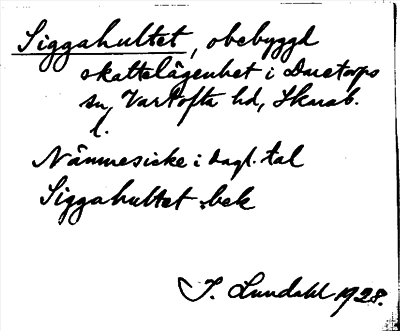 Siggahultet, obebyggd
skattelägenhet i Daretorps
sn, Vartofta hd, Skarab.
l.
Nämnes icke i dagl. tal
Siggahultet bek
I. Lundahl 1928.